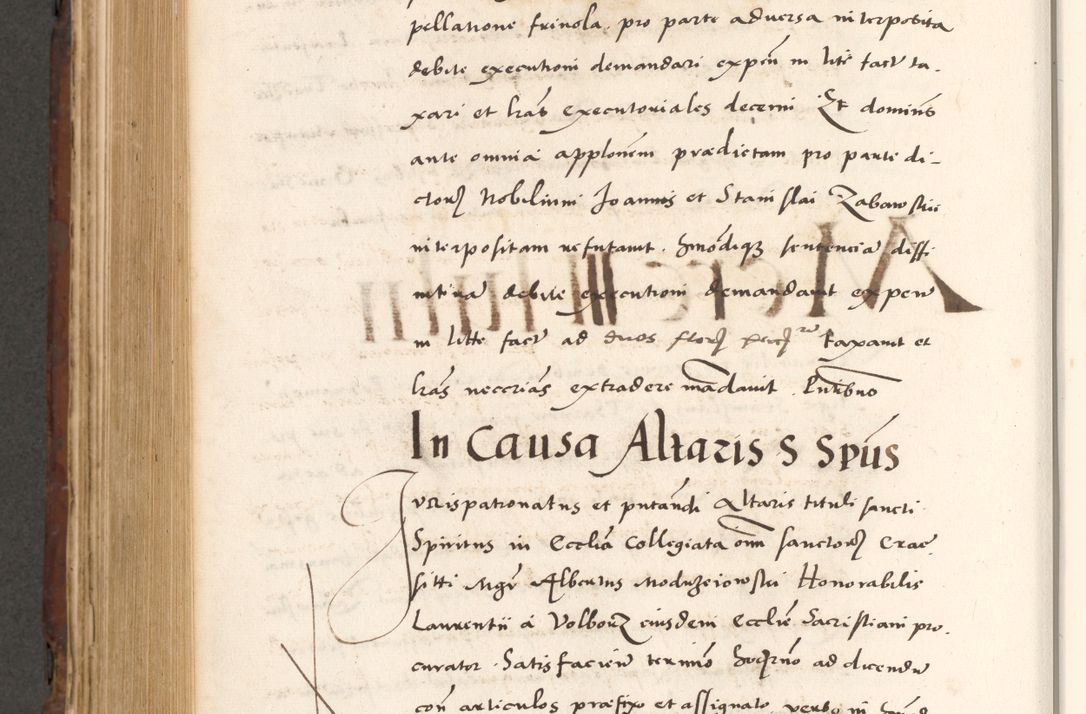 pellatione friuola, pro parte aduersa interposita
debite executioni demandari expeñ in lite fact ta-
xari et lras executoriales decerni Et dominus
ante omnia applonem prædictam pro parte di-
ctorum Nobilium Joannis et Stanislai Zabawskii
interpositam refutauit. sentencia diffi
nitiua debite executioni demandauit expen
in litte fact ad duos taxauit et
lras neccrias extradere mandauit.
In Causa Altaris S Spus
Jurispatronatus et putandi Altaris tituli sancti
Spiritus in Ecclia Collegiata omn sanctorum Crac
sitti Mgr Albertus Honorabilis
Laurentii a Volborz eiusdem Ecclie Sacristiani pro-
curator. Satisfacien termino hodierno ad dicendum
con articulos præfixo et assignato, verbo in